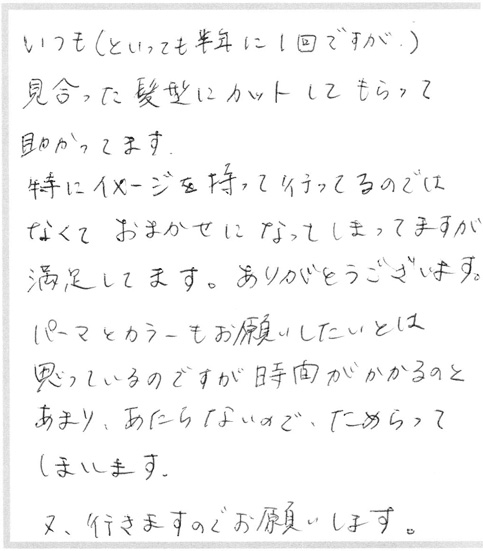 いつも(といっても半年に1回ですが.)
見合った髪型にカットしてもらって
助かってます.
特にイメージを持って行ってるのでは
なくておまかせになってしまってますが
満足してます。ありがとうございます。
パーマとカラーもお願いしたいとは
思っているのですが時間がかかるのと
あまり、あたらないので、ためらって
しまいます.
又、行きますのでお願いします。